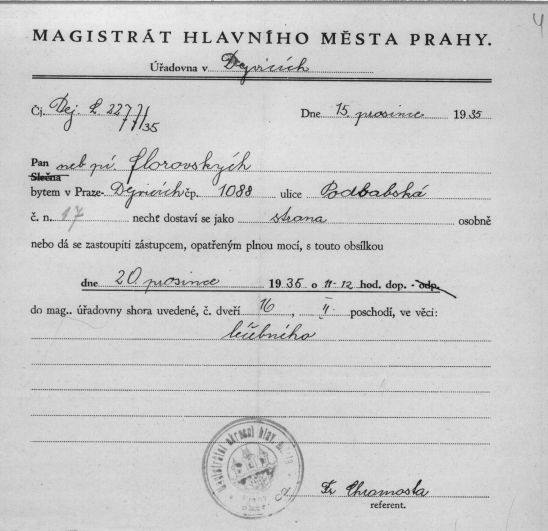 4
MAGISTRÁT HLAVNÍHO MĚSTA PRAHY.
Úřadovna v Dejvicích
Čj. Dej. 2277/35 Dne 15. prosince 1935
Pan neb pí. Florovských
Slečna
bytem v Praze- Dejvicích čp. 1088 ulice Podbabská
č. n. 17 nechť dostaví se jako strana osobně
nebo dá se zastoupiti zástupcem, opatřeným plnou mocí, s touto obsílkou
dne 20 prosince 1935 o 11-12 hod. dop. - odp.
do mag.. úřadovny shora uvedené, č. dveří 16, II. poschodí, ve věci:
léčebného
Fr Chromosta
referent.